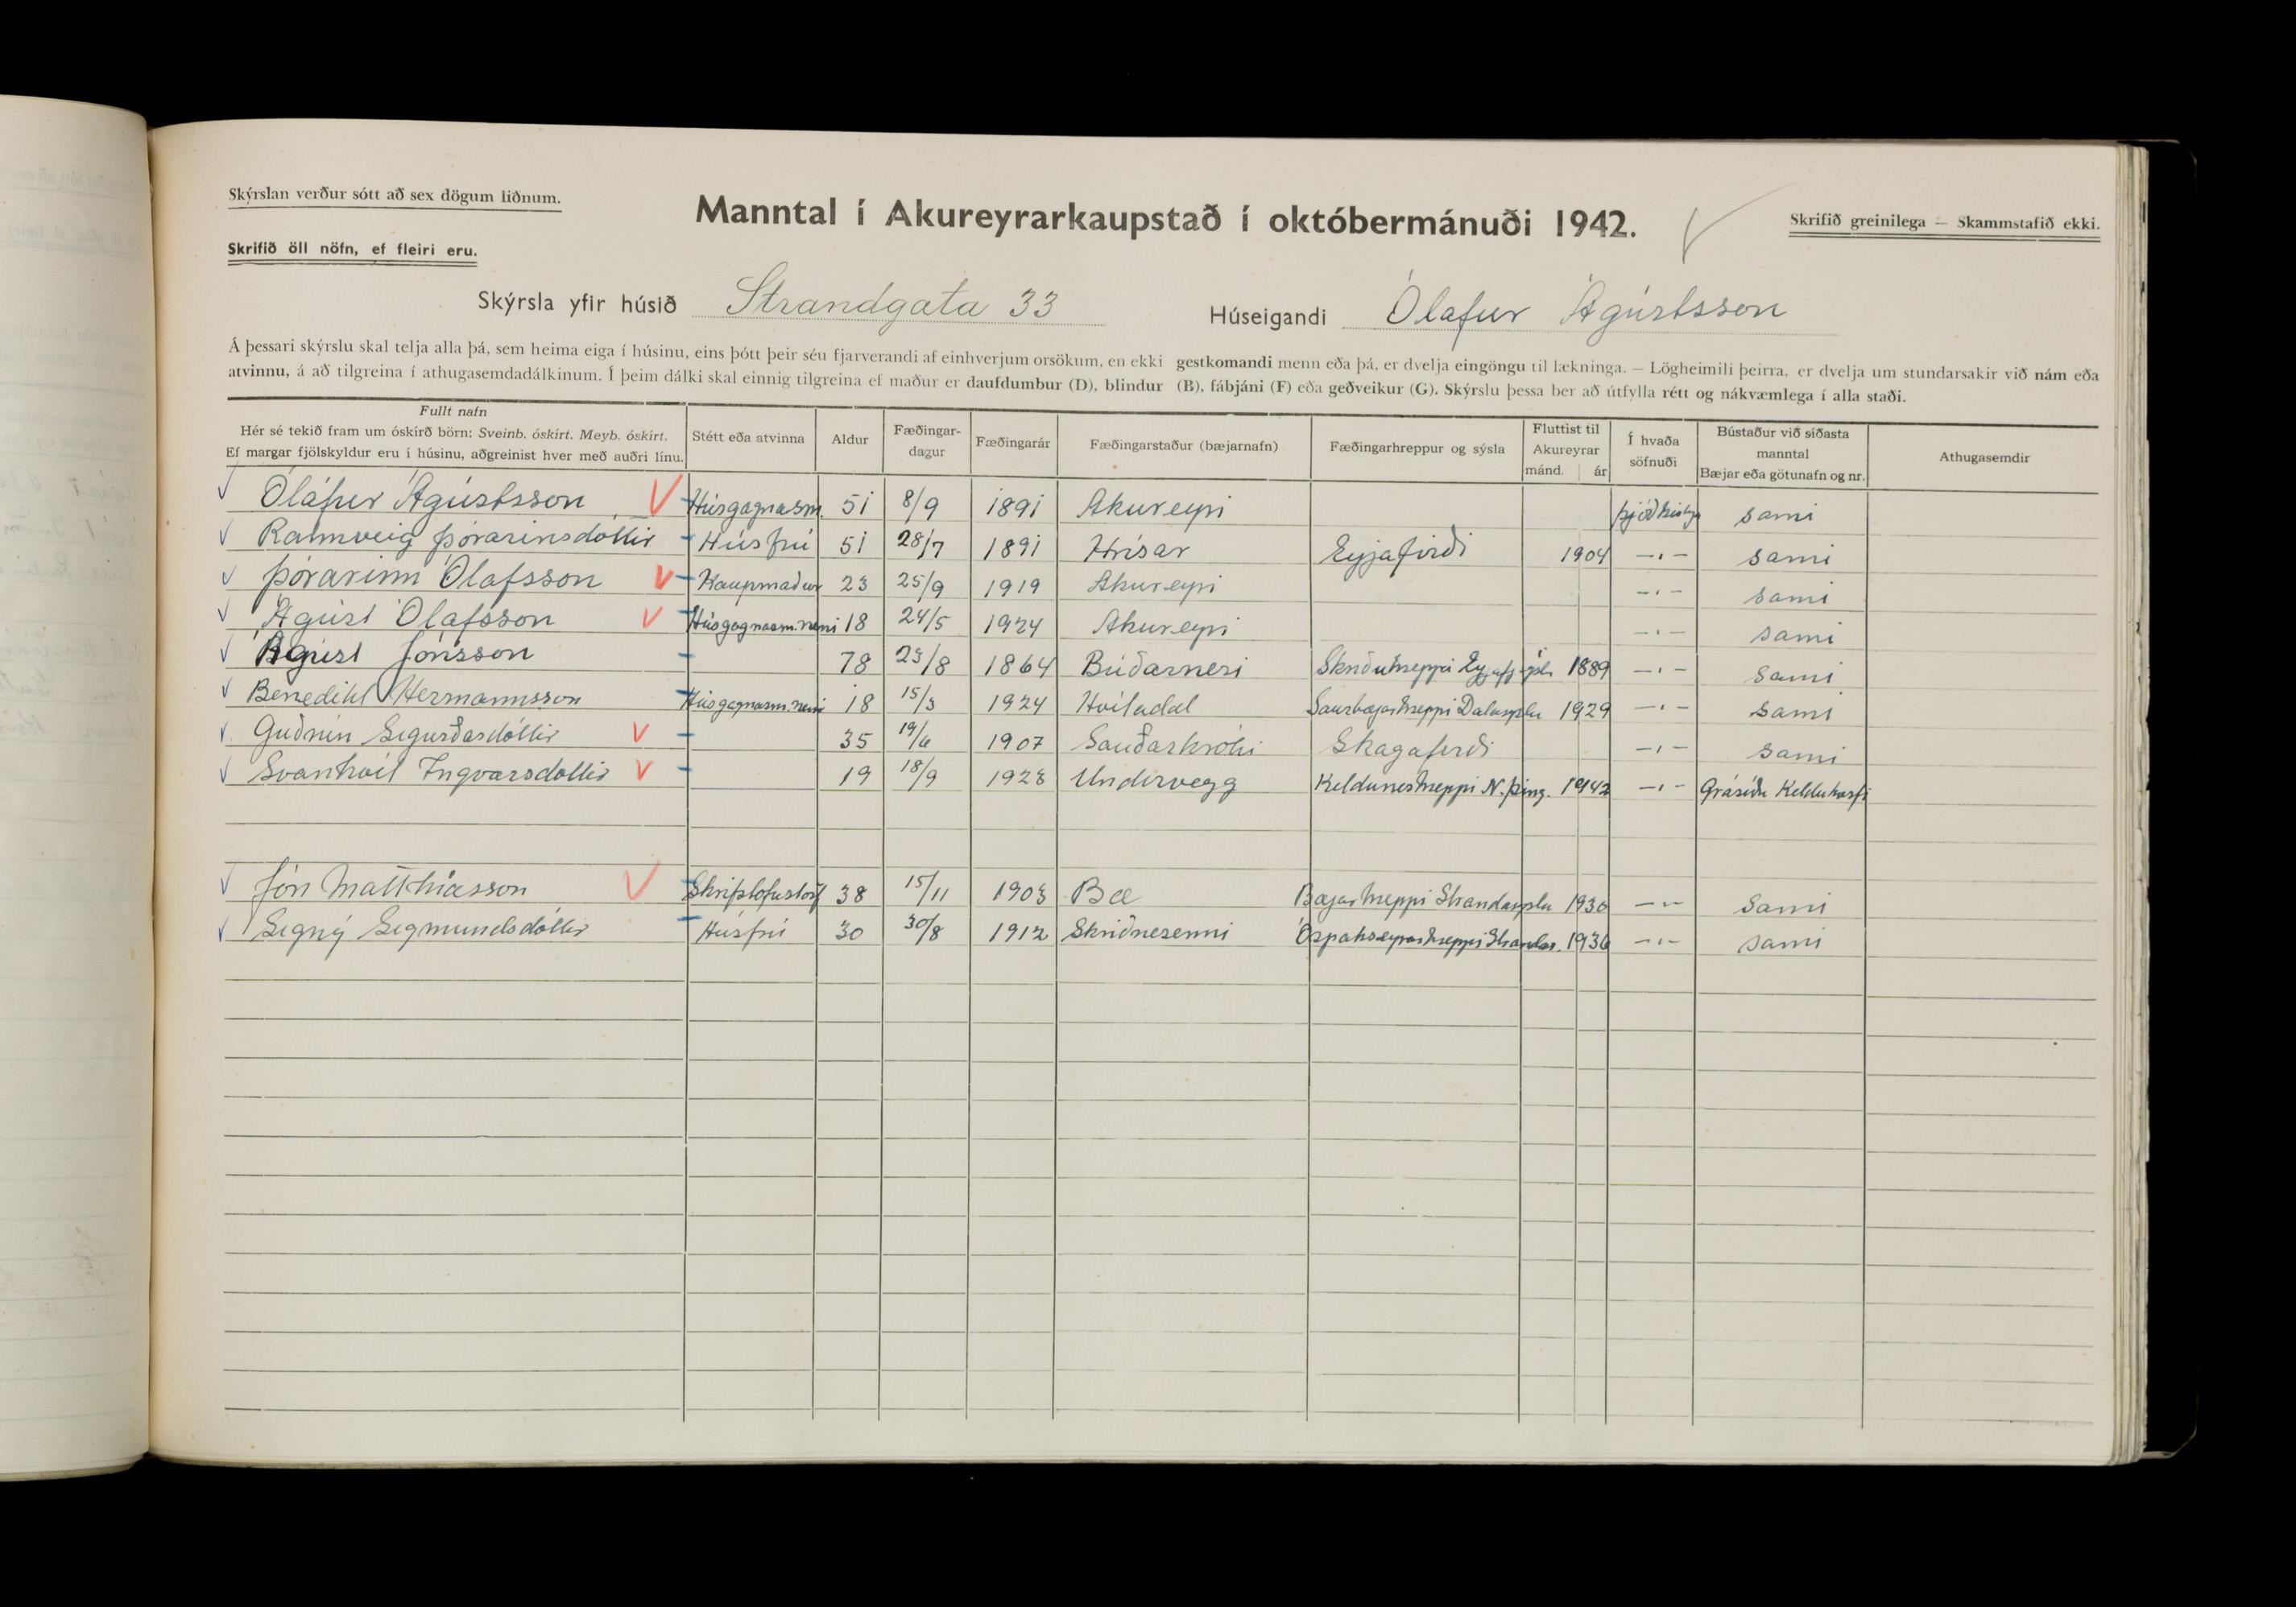 Skýrslan verður sótt að sex dögum liðnum.
Skrifið öll nöfn, ef fleiri eru.
Manntal í Akureyrarkaupstað í októbermánuði 1942.
Skrifið greinilega — Skammstafið ekki.
Skýrsla yfir húsið Strandgata 33 Húseigandi Ólafur Ágústsson
Á þessari skýrslu skal telja alla þá, sem heima eiga í húsinu, eins þótt þeir séu fjarverandi af einhverjum orsökum, en ekki gestkomandi menn eða þá, er dvelja eingöngu til lækninga. — Lögheimili þeirra, er dvelja um stundarsakir við nám eða
atvinnu, á að tilgreina í athugasemdadálkinum. Í þeim dálki skal einnig tilgreina ef maður er daufdumbur (D), blindur (B), fábjáni (F) eða geðveikur (G). Skýrslu þessa ber að útfylla rétt og nákvæmlega í alla staði.
Fullt nafn
Hér sé tekið fram um óskírð börn: Sveinb. óskírt. Meyb. óskírt.
Ef margar fjölskyldur eru í húsinu, aðgreinist hver með auðri línu.
Stétt eða atvinna
Aldur
Fæðingar-
dagur
Fæðingarár
Fæðingarstaður (bæjarnafn)
Fæðingarhreppur og sýsla
Fluttist til
Akureyrar
mánd. ár
Í hvaða
söfnuði
Bústaður við síðasta
manntal
Bæjar eða götunafn og nr.
Athugasemdir
Ólafur Ágústsson Húsgagnasm. 51 8/9 1891 Akureyri þjóðkirkju sami
Rannveig Þórarinsdóttir Húsfrú 51 28/7 1891 Hrísar Eyjafirði 1904 —〃— sami
Þórarinn Ólafsson Kaupmaður 23 25/9 1919 Akureyri —〃— sami
Ágúst Ólafsson Húsgagnasm.nemi 18 24/5 1924 Akureyri —〃— sami
Ágúst Jónsson 78 23/8 1864 Búðarnesi Skriðuhreppi 1889 —〃— sami
Benedikt Hermannsson Húsgagnasm.nemi 18 15/3 1924 Hvítadal Saurbæjarhreppi Dalasýslu 1929 —〃— sami
Guðrún Sigurðardóttir 35 19/6 1907 Sauðárkróki Skagafirði —〃— sami
Svanhvít Ingvarsdóttir 19 18/9 1923 Undirvegg Kelduneshreppi N.þing. 1942 —〃— Grásíðu Kelduhverfi
Jón Matthíasson Skrifstofustörf 38 15/11 1903 Bæ Bæjarhreppi Strandasýslu 1930 —〃— sami
Signý Sigmundsdóttir Húsfrú 30 30/8 1912 Skriðnesenni Óspakseyrarhreppi Strandas. 1936 —〃— sami